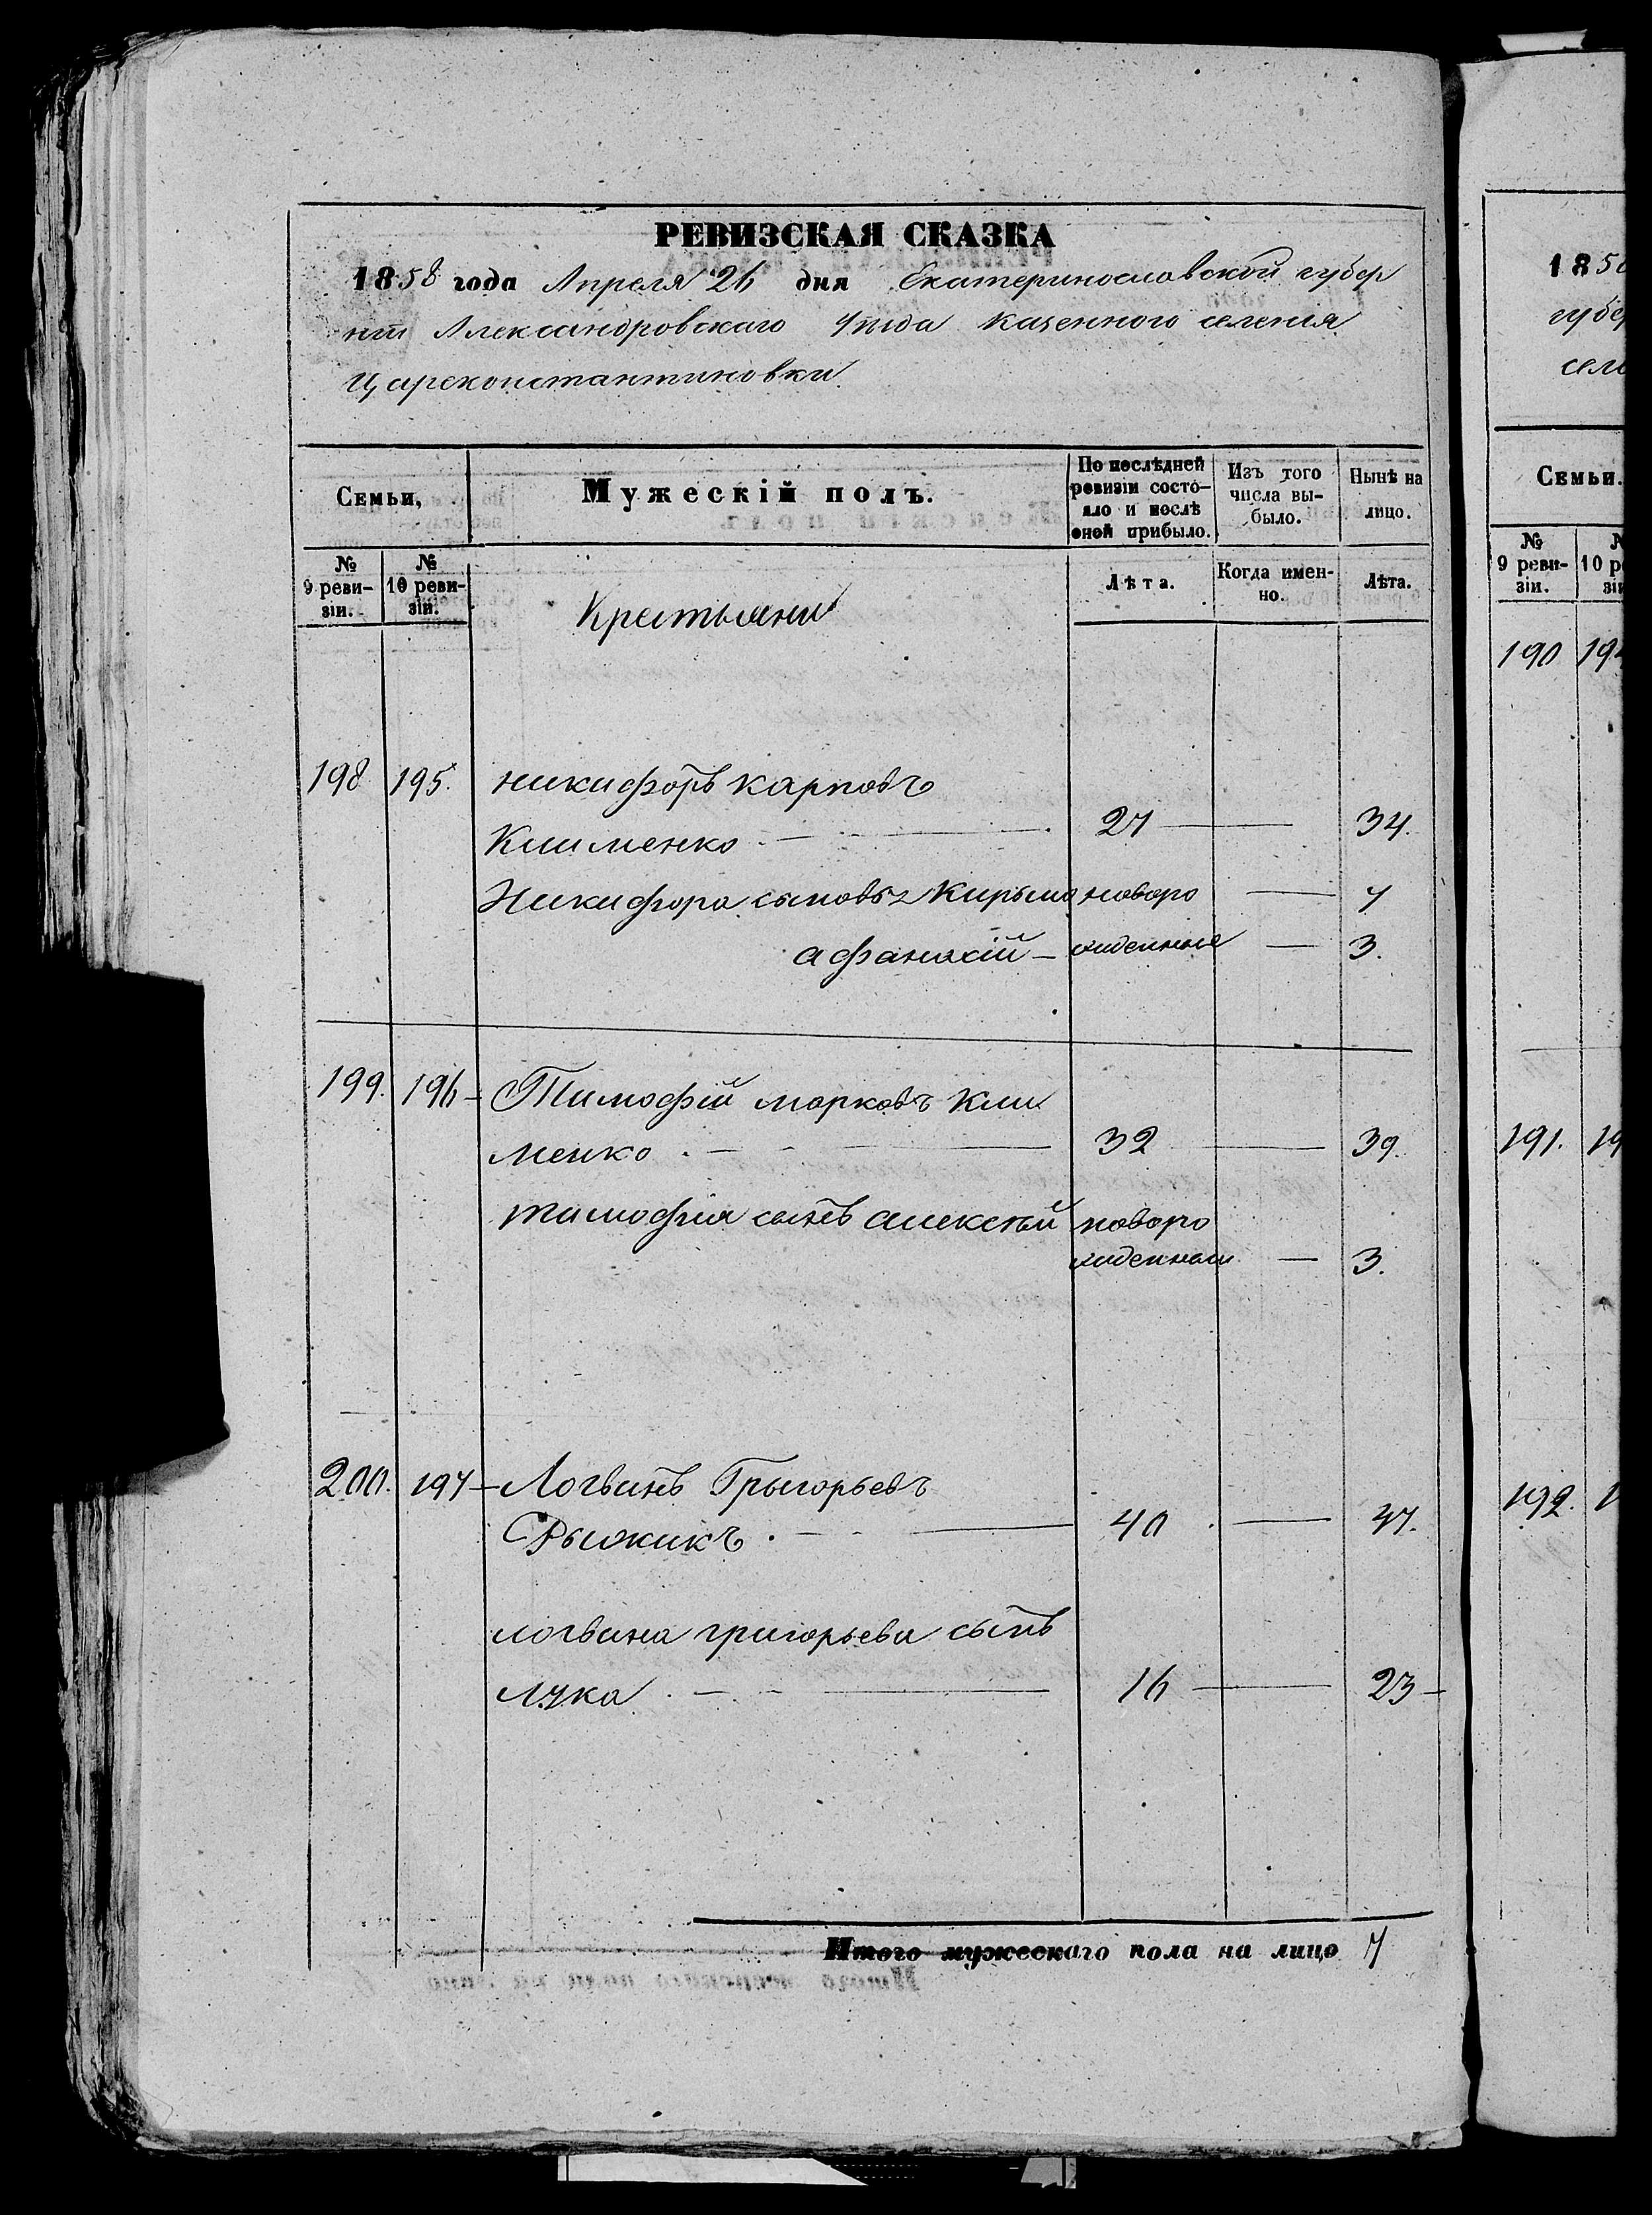 РЕВИЗСКАЯ СКАЗКА
1858 года Апреля 26 дня Екатеринославской губер
ніи Александровскаго Уѣзда Казенного селенія
Цареконстантиновки
Семьи,
Мужескій полъ.
По послѣдней ревизіи состо-
яло и послѣ оной прибыло.
Изъ того числа вы-
было.
Нынѣ на лицо.
№ 9 реви-
зіи.
№ 10 реви-
зіи.
Крестьяни
Лѣта.
Когда имен-
но.
Лѣта.
198 195. никифоръ карповъ
Клименко 27 34.
Никифора сыновья Кирыло новоро 7
афанасій жденные 3.
199. 196 Тимофей марковъ Кли
менко 32 39.
тимофея сынъ алексѣй новоро
жденный 3.
200. 197 Логвинъ Григорьевъ
Рыжикъ 40 47.
логвина григорьева сынъ
Лука 16 23
Итого мужескаго пола на лицо 7
1858
губер
село
Семьи.
№ 9 реви-
зіи.
190
191.
192.